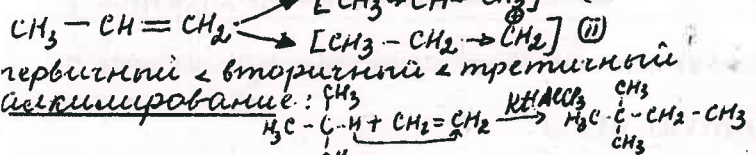 [CH3 → CH – CH3]
CH3 – CH = CH2
[CH3 – CH2 → CH2] ⊕ (ii)
первичный < вторичный < третичный
алкилирование:
CH3
H3C – C – H + CH2 = CH2 → H3C – C – CH2 – CH3
CH3
CH3